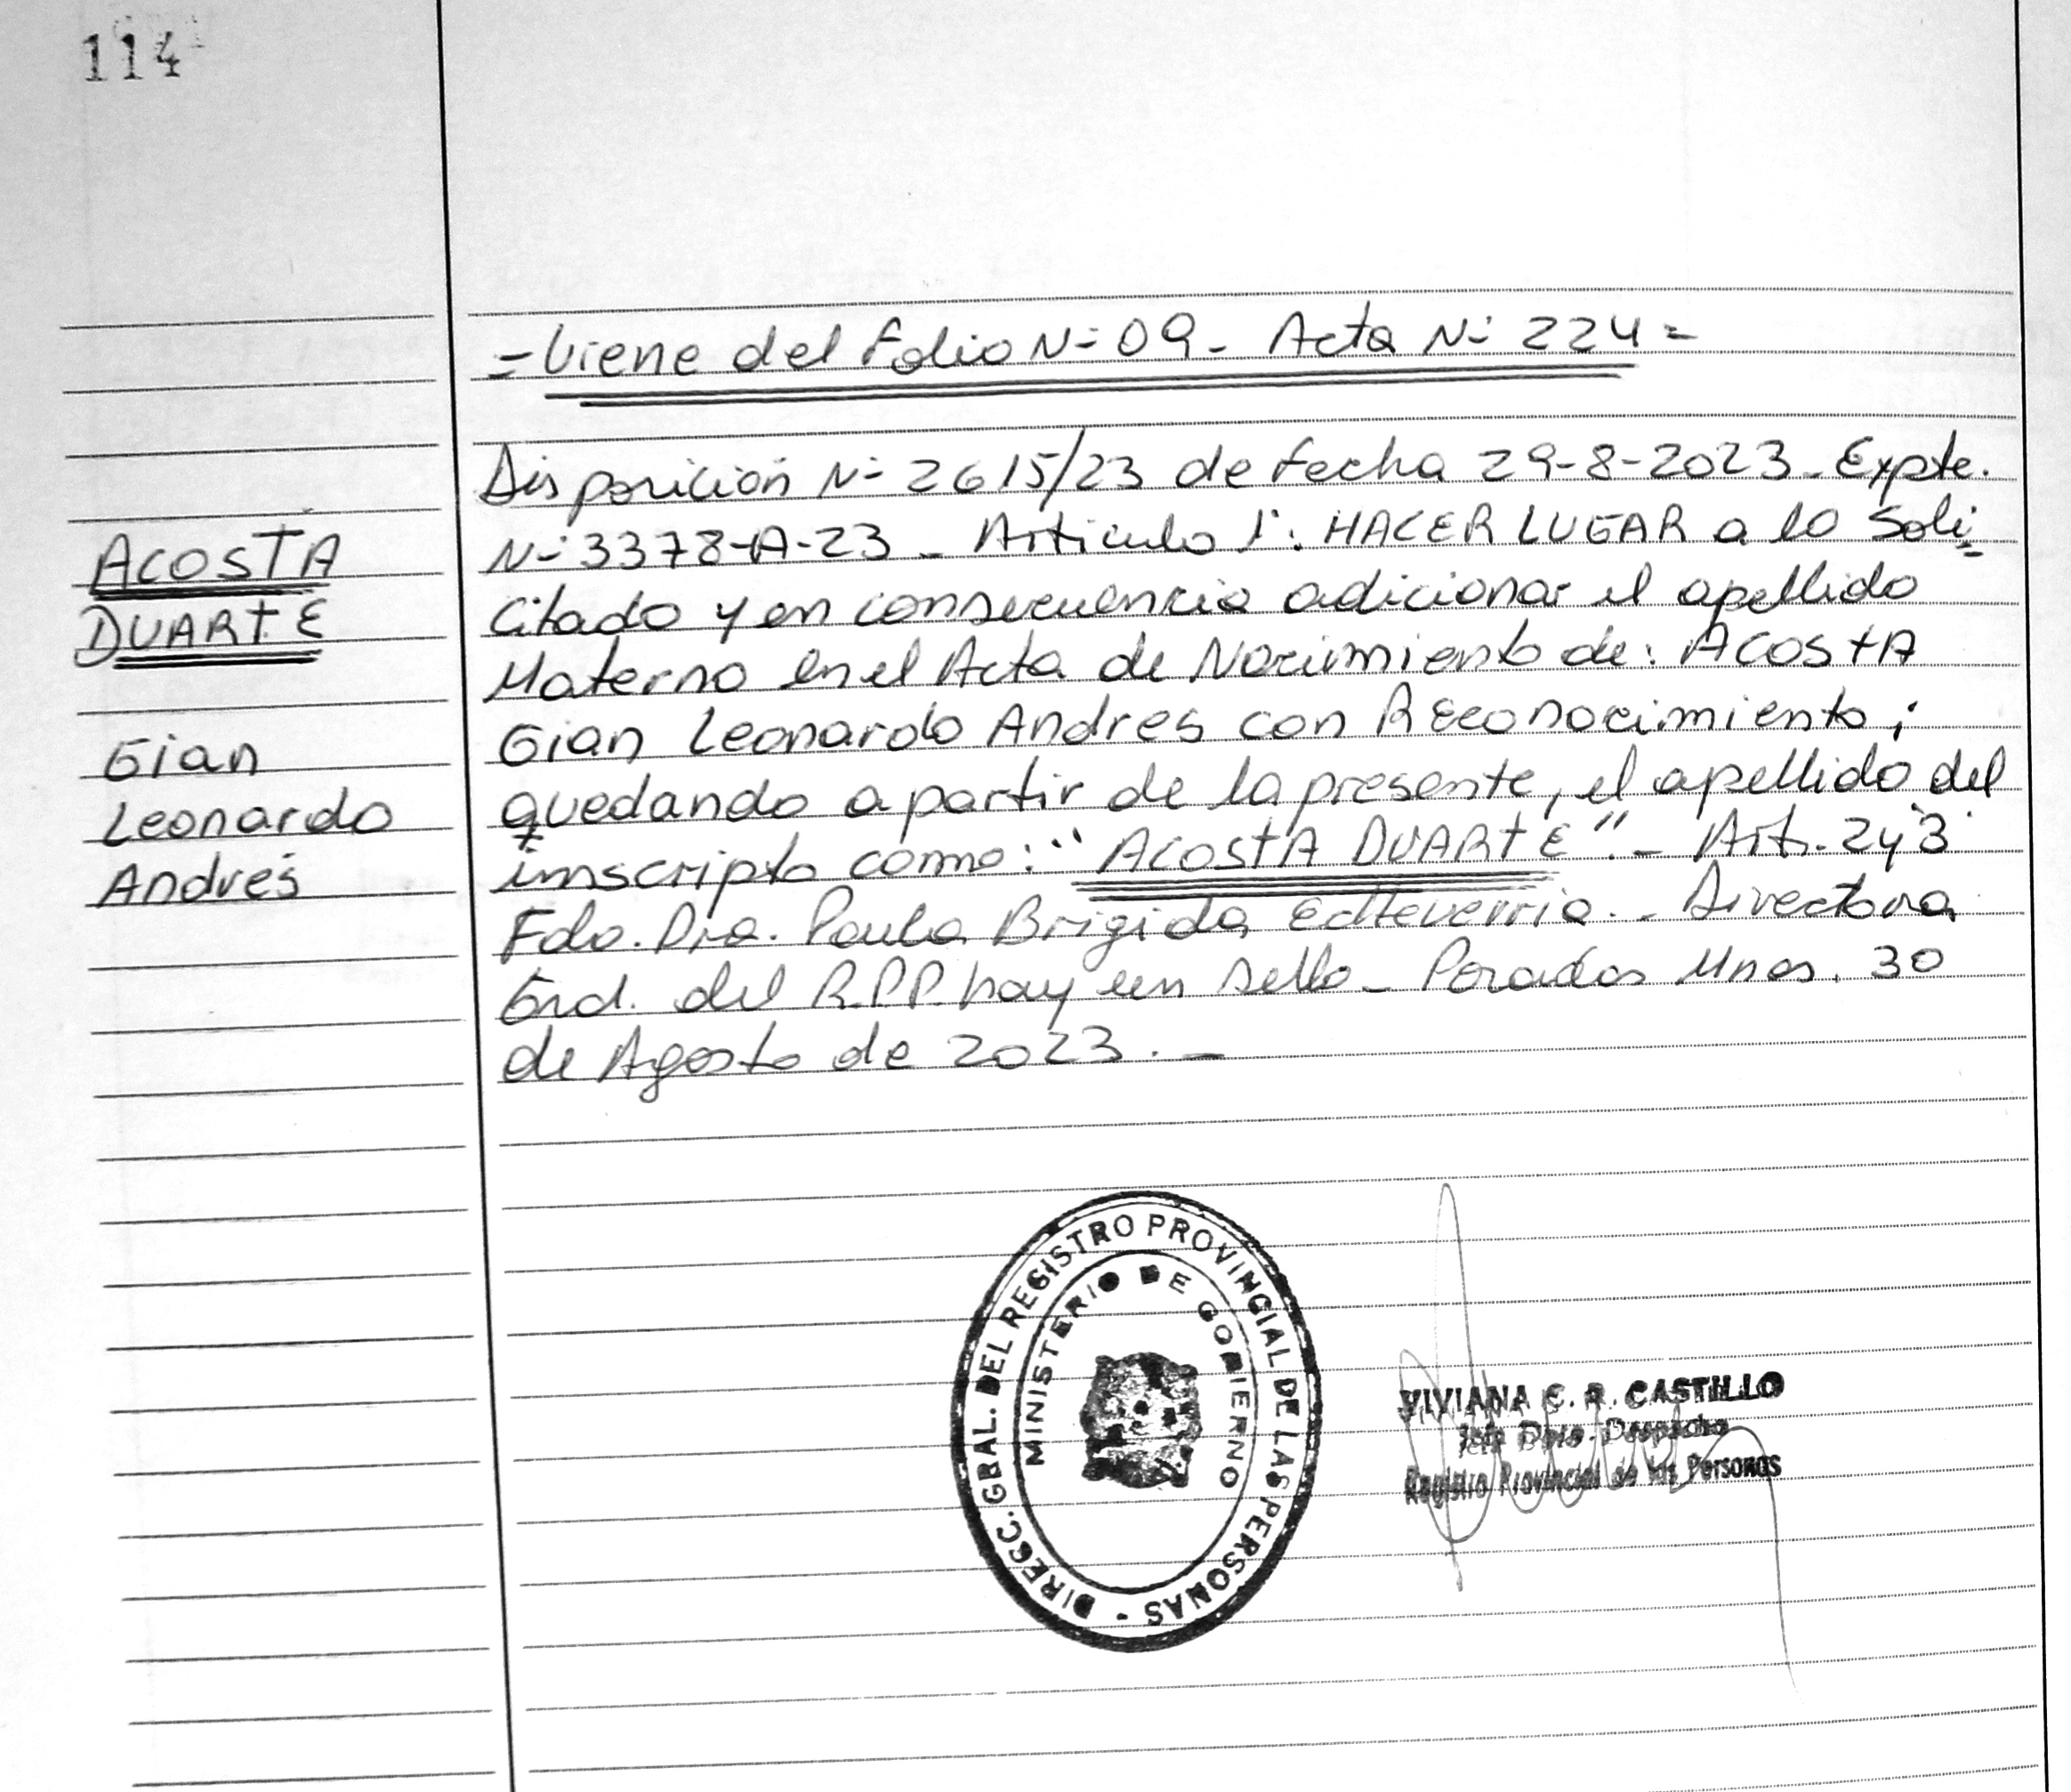 114
= Viene del Folio Nº 09 - Acta Nº 224 =
Disposición Nº 2615/23 de fecha 29-8-2023 - Expte.
Nº 3378-A-23 - Articulo 1º: HACER LUGAR a lo Soli=
citado y en consecuencia adicionar el apellido
Materno en el Acta de Nacimiento de: ACOSTA
Gian Leonardo Andres con Reconocimiento;
quedando a partir de la presente, el apellido del
inscripto como: "ACOSTA DUARTE". - Art. 2 y 3
Fdo. Dra. Paula Brigida Echeverria. - Directora
Gral. del R.P.P. hay un sello - Posadas Mnes. 30
de Agosto de 2023. -
ACOSTA
DUARTE
Gian
Leonardo
Andrés
DIRECC. GBAL. DEL REGISTRO PROVINCIAL DE LAS PERSONAS -
MINISTERIO DE GOBIERNO
VIVIANA C. R. CASTILLO
Jefe Dpto. Despacho
Registro Provincial de las Personas